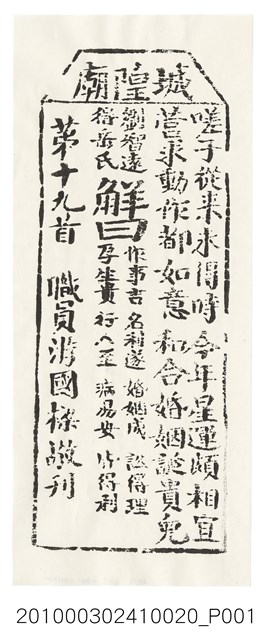 城隍廟
嗟子從來未得時 今年星運頗相宜
營求動作都如意 和合婚姻誕貴兒
劉智遠
得岳氏
解曰
作事吉 名利遂 婚姻成 訟得理
孕生貴 行人至 病易安 皆得利
第十九首 職員游國樑敬刊
201000302410020_P001